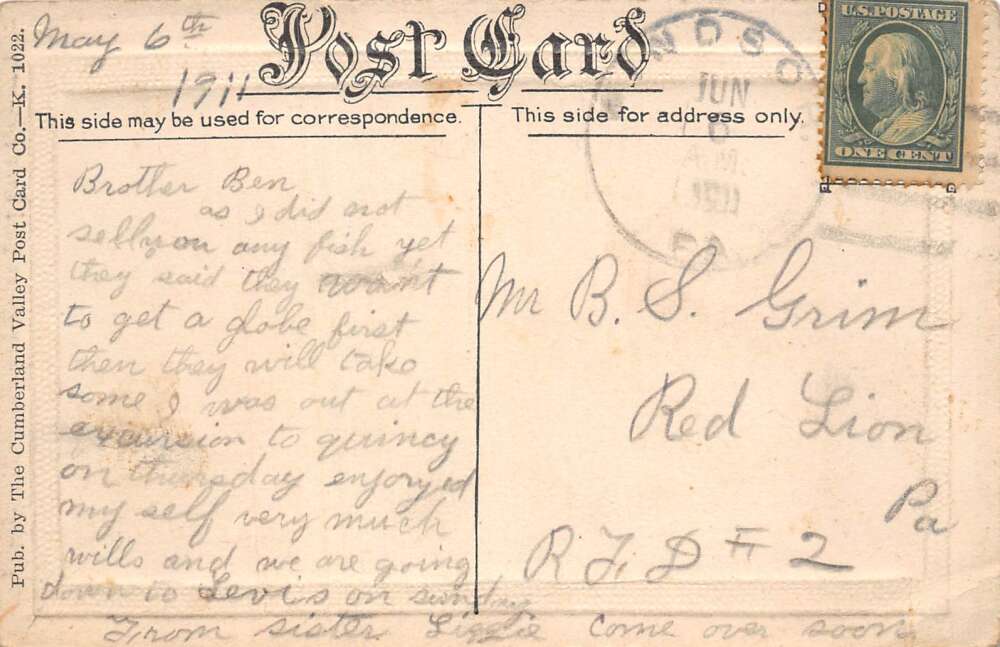 May 6th
1911
Post Card
This side may be used for correspondence.
Brother Ben
as I did not
sell you any fish yet
they said they want
to get a globe first
then they will take
some I was out at the
excursion to quincy
on thursday enjoyed
my self very much
wills and we are going
down to Levi's on sunday
From sister Lizzie come over soon
This side for address only.
NDSO
JUN
6
A.M.
1911
PA.
U.S. POSTAGE
ONE CENT
Mr B. S. Grim
Red Lion
Pa
R. F. D # 2
Pub. by The Cumberland Valley Post Card Co.—K. 1022.